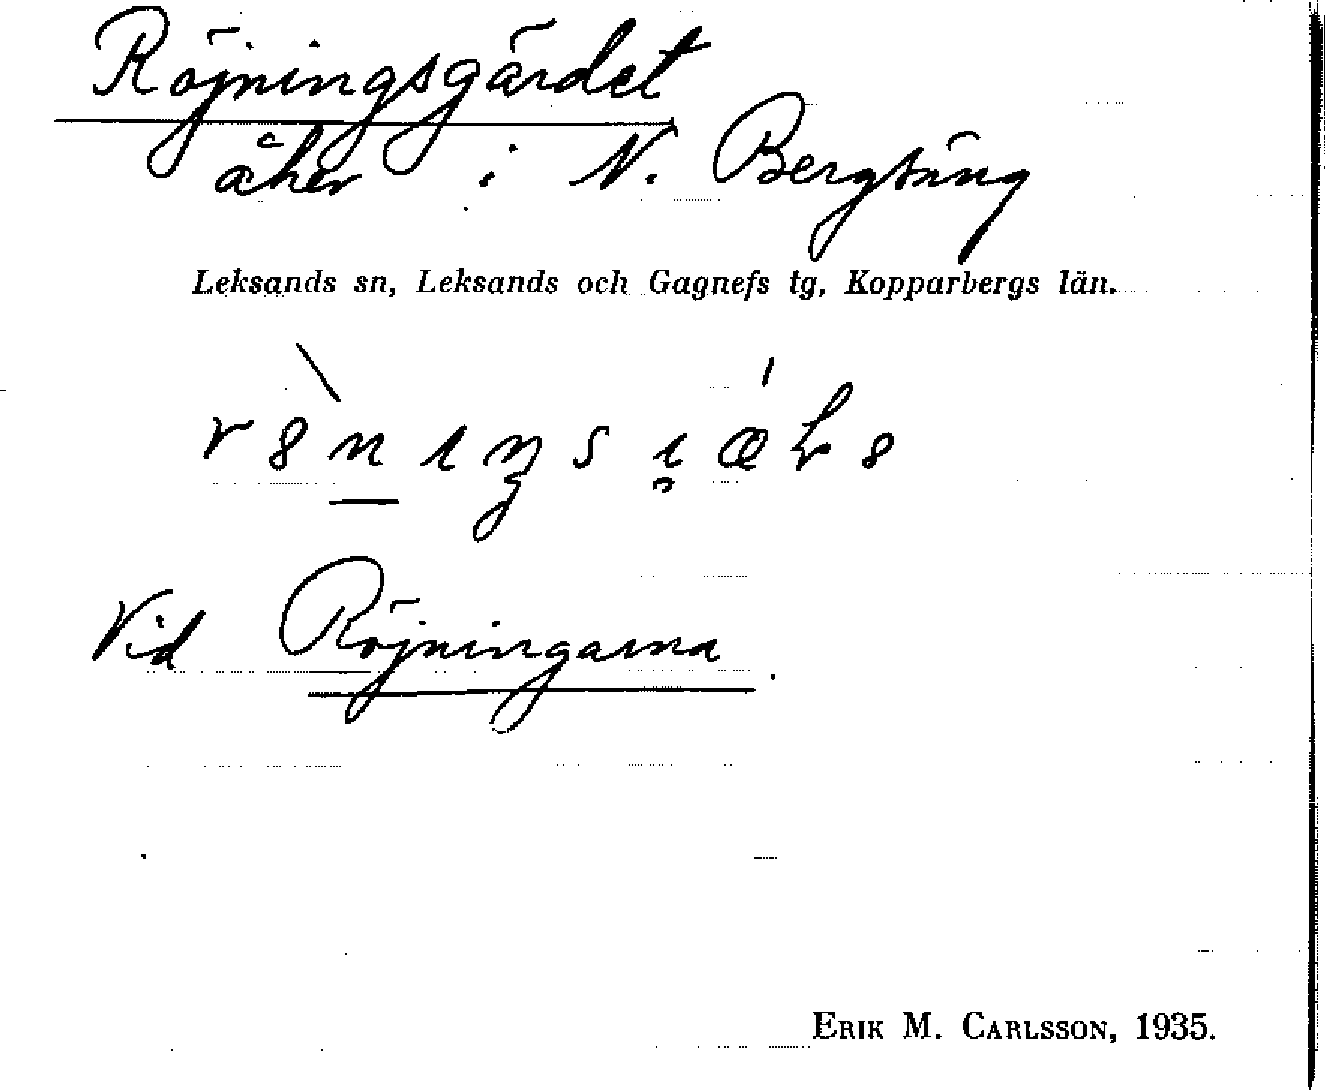 Röjningsgärdet
åker i N. Bergsäng
Leksands sn, Leksands och Gagnefs tg, Kopparbergs län.
Vid Röjningarna.
ERIK M. CARLSSON, 1935.